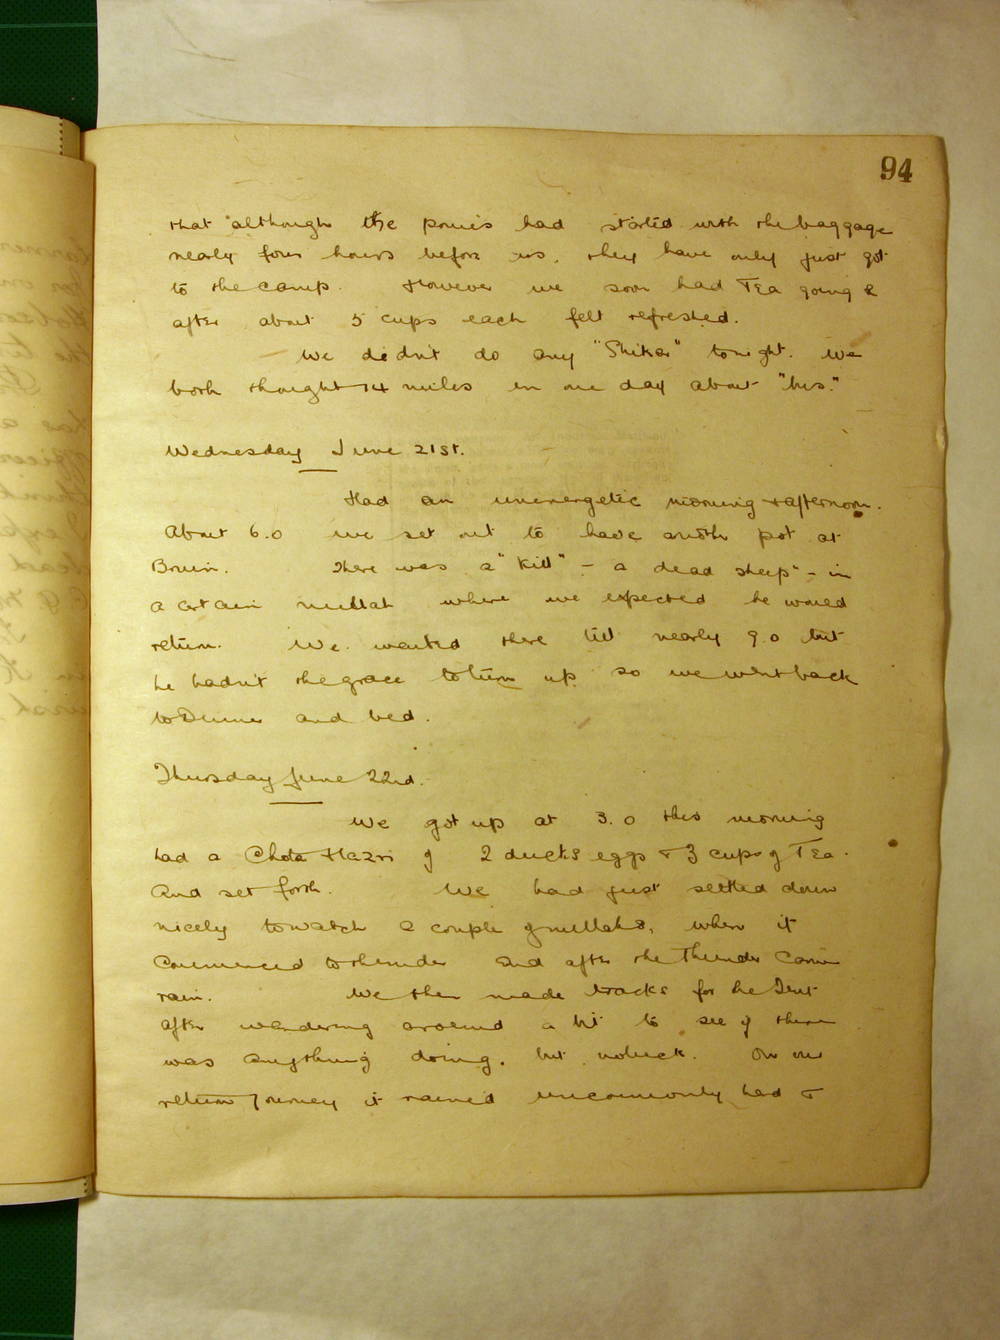 94
that although the ponies had started with the baggage
nearly four hours before us, they have only just got
to the camp. However we soon had Tea going &
after about 5 cups each felt refreshed.
We didn't do any "Shikar" tonight. We
both thought 14 miles in one day about "bus."
Wednesday June 21st.
Had an unenergetic morning & afternoon.
About 6.0 we set out to have another pot at
Bruin. There was a "Kill" - a dead sheep - in
a certain nullah where we expected he would
return. We waited there till nearly 9.0 but
he hadn't the grace to turn up so we went back
to Dinner and bed.
Thursday June 22nd.
We got up at 3.0 this morning
had a Chota Hazri of 2 ducks eggs & 3 cups of Tea.
And set forth. We had just settled down
nicely to watch a couple of nullahs, when it
commenced to thunder and after the thunder came
rain. We then made tracks for the Tent
after wandering around a bit to see if there
was anything doing, but no luck. On our
return journey it rained uncommonly hard &